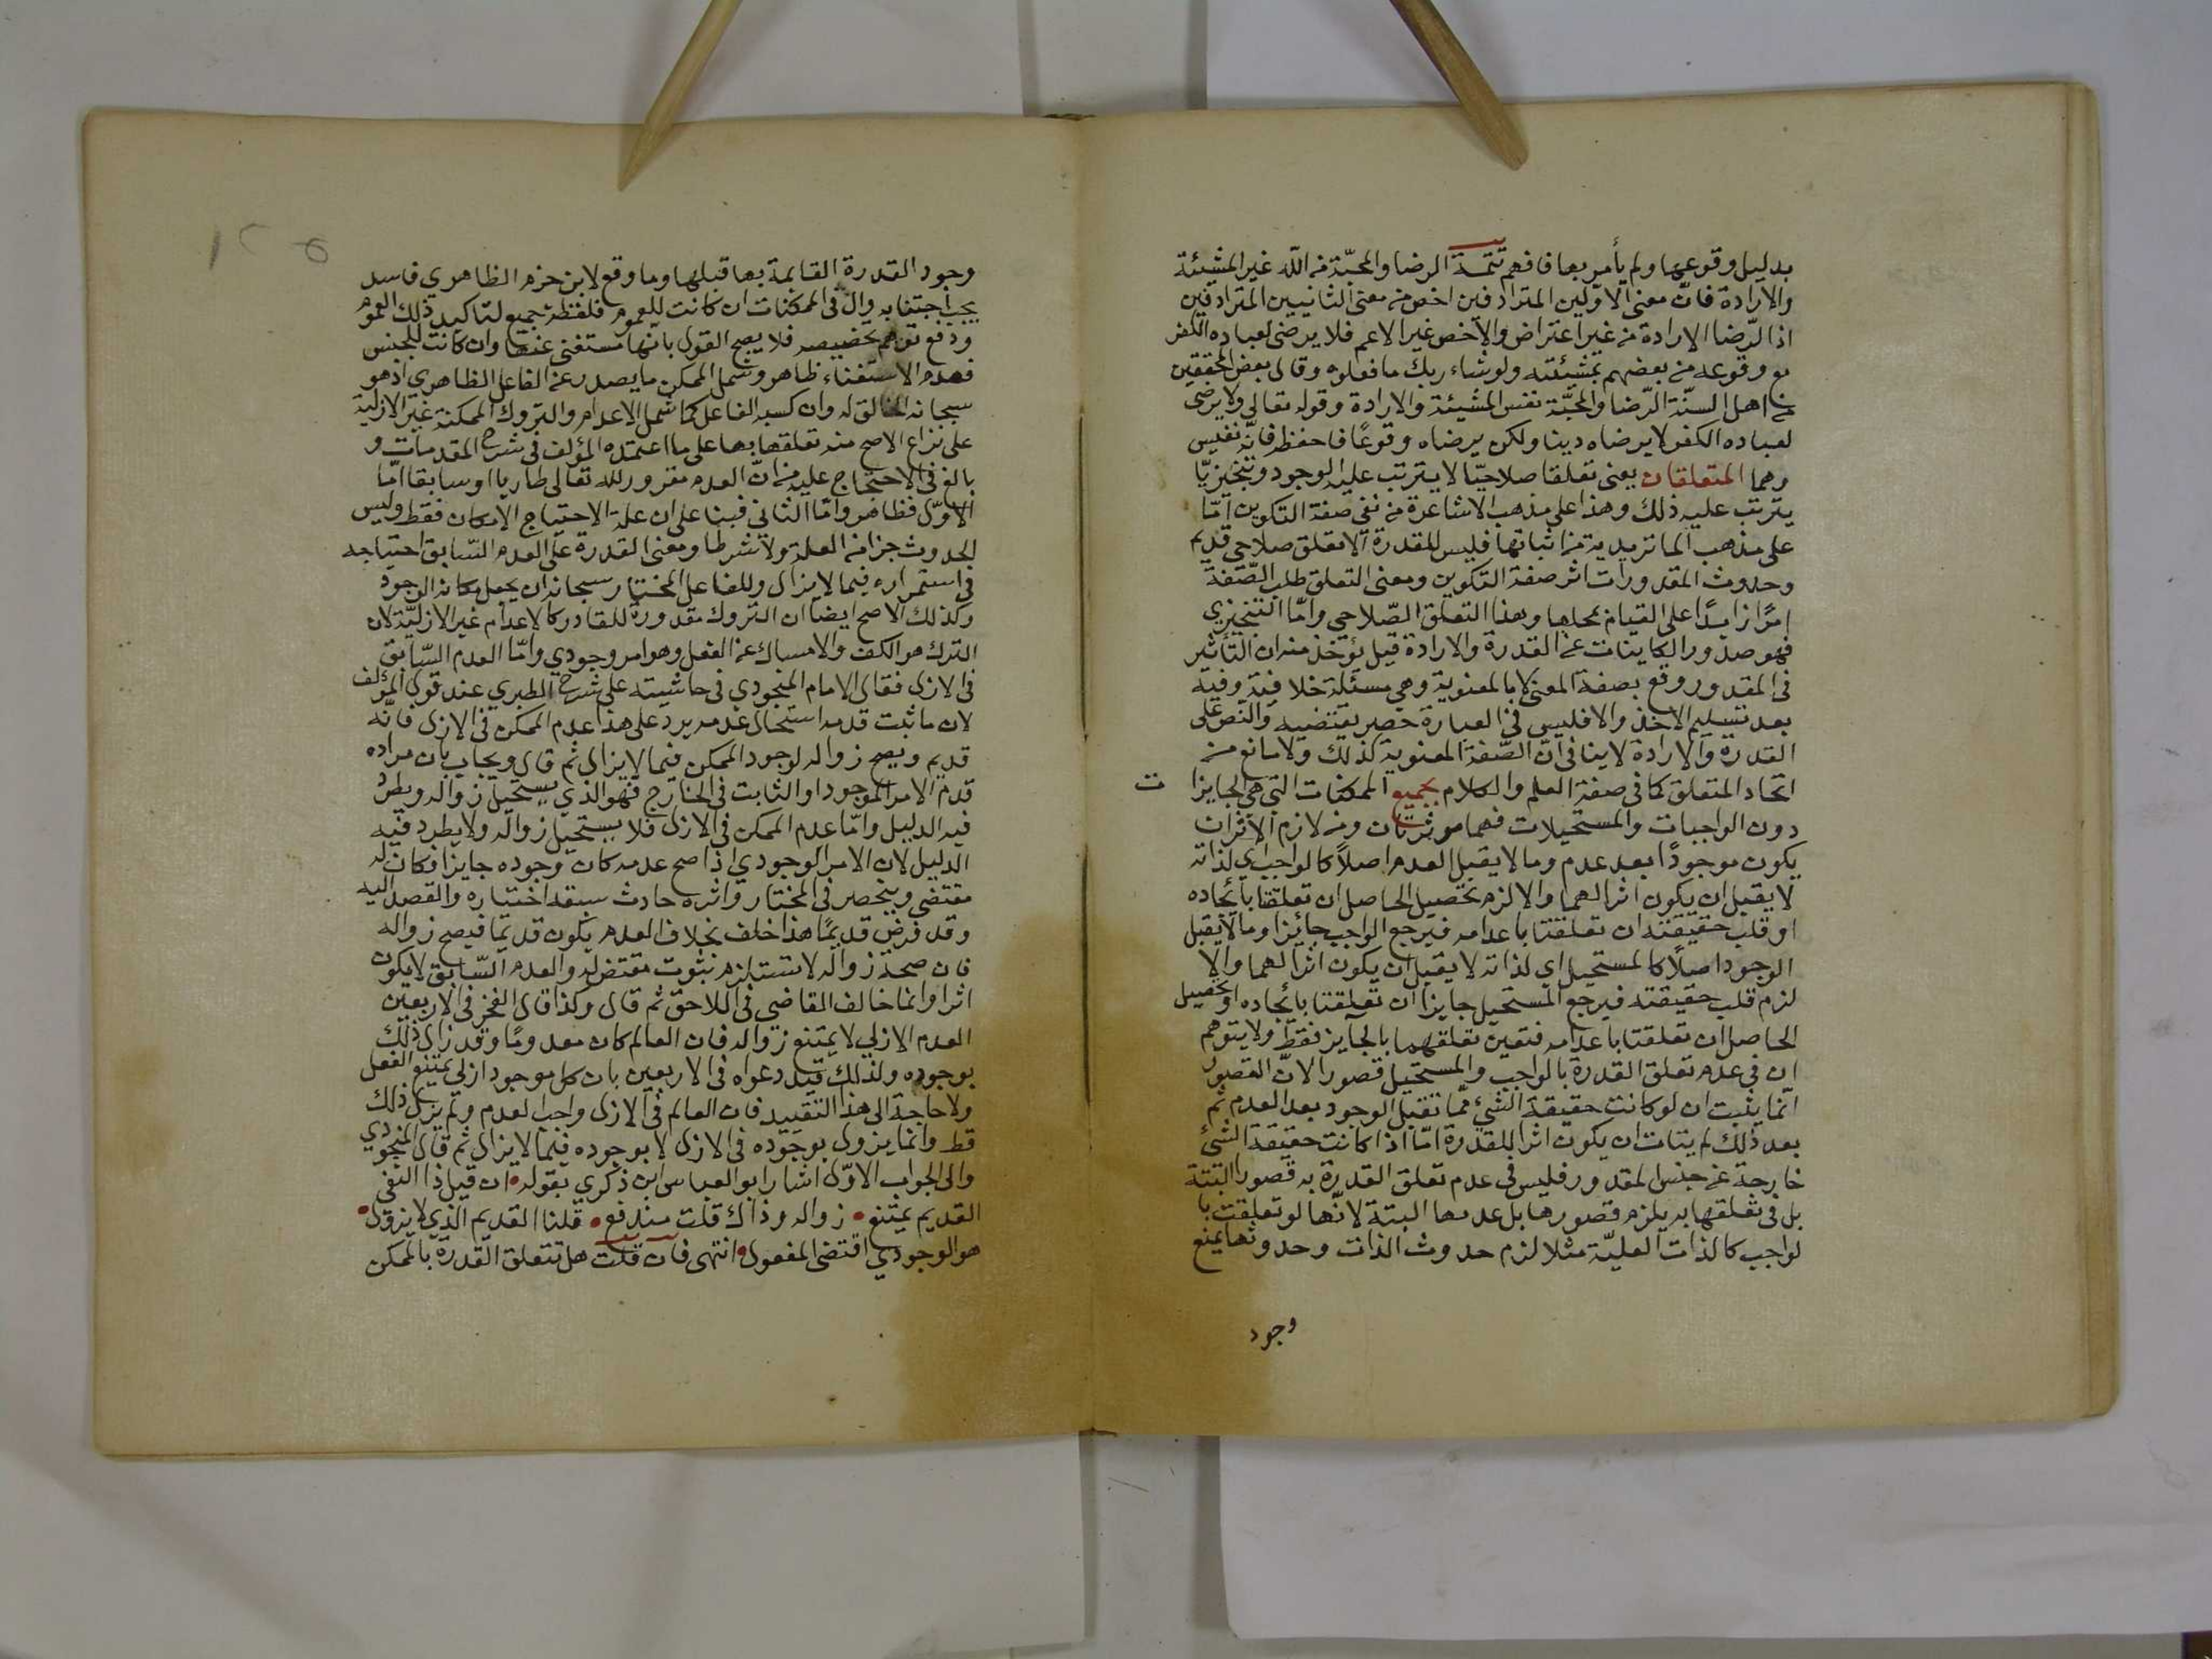 بدليل وقوعها ولم يأمر بها فافهم تتمة الرضا والمحبّة من الله غير المشيئة
والارادة فانّ معنى الاوّلين المترادفين اخص من معنى الثانيين المترادفين
اذ الرّضا الارادة من غير اعتراض والاخص غير الاعم فلا يرضى لعباده الكفر
مع وقوعه من بعضهم بمشيئته ولو شاء ربك ما فعلوه وقال بعض المحققين
من اهل السنّة الرّضا والمحبّة نفس المشيئة والارادة وقوله تعالى ولا يرضى
لعباده الكفر لا يرضاه دينا ولكن يرضاه وقوعًا فاحفظ فانّه نفيس
وهما المتعلقان يعني تعلقا صلاحيّا لا يترتب عليه الوجود وتنجيزيّا
يترتب عليه ذلك وهذا على مذهب الاشاعرة من نفي صفة التكوين امّا
على مذهب الماتريدية من اثباتها فليس للقدرة الا تعلق صلاحي قديم
وحدوث المقدورات اثر صفة التكوين ومعنى التعلق طلب الصّفة
امرًا زايدًا على القيام بمحلها وهذا التعلق الصّلاحي وامّا التنجيزي
فهو صدور الكاينات عن القدرة والارادة قيل يؤخذ منه ان التأثير
في المقدور وقع بصفة المعنى لا بالمعنوية وهي مسئلة خلافية وفيه
بعد تسليم الاخذ والا فليس في العبارة حصر يقتضيه والنص على
القدرة والارادة لا ينافي انّ الصّفة المعنوية كذلك ولا مانع من
اتحاد المتعلق كما في صفة العلم والكلام بجميع الممكنات التي هي الجايزا ت
دون الواجبات والمستحيلات فهما موثرتان ومن لازم الاثر ان
يكون موجودًا بعد عدم وما لا يقبل العدم اصلًا كالواجب اي لذاته
لا يقبل ان يكون اثرا لهما والا لزم تحصيل الحاصل ان تعلقتا بايجاده
او قلب حقيقته ان تعلقتا باعدامه فيرجع الواجب جائزا وما لا يقبل
الوجود اصلًا كالمستحيل اي لذاته لا يقبل ان يكون اثرا لهما والا
لزم قلب حقيقته فيرجع المستحيل جايزا ان تعلقتا بايجاده او تحصيل
الحاصل ان تعلقتا باعدامه فتعين تعلقهما بالجايز فقط ولا يتوهم
ان في عدم تعلق القدرة بالواجب والمستحيل قصورا لانّ القصور
انّما يثبت ان لو كانت حقيقة الشيء ممّا تقبل الوجود بعد العدم ثم
بعد ذلك لم يتات ان يكون اثرا للقدرة امّا اذا كانت حقيقة الشئ
خارجة عن جنس المقدور فليس في عدم تعلق القدرة به قصورا البتة
بل في تعلقها به يلزم قصورها بل عدمها البتة لانّها لو تعلقت با
لواجب كالذات العليّة مثلا لزم حدوث الذات وحدوثها يمنع
وجود
وجود القدرة القايمة بها قبلها وما وقع لابن حزم الظاهري فاسد
يجب اجتنابه وال في الممكنات ان كانت للعموم فلفظة جميع لتاكيد ذلك العموم
ودفع توهم تخصيصه فلا يصح القول بانّها مستغنى عنها وان كانت للجنس
فعدم الاستغناء ظاهر وشمل الممكن ما يصدر عن الفاعل الظاهري اذ هو
سبحانه الخالق له وان كسبه الفاعل كما شمل الاعدام والتروك الممكنة غير الازلية
على نزاع الاصح منه تعلقها بها على ما اعتمده المؤلف في شرح المقدمات و
بالغ في الاحتجاج عليه من انّ العدم مقدور لله تعالى طاريا او سابقا امّا
الاوّل فظاهر وامّا الثاني فبنا على ان علة الاحتياج الامكان فقط وليس
الحدوث جزا من العلة ولا شرطا ومعنى القدرة على العدم السّابق احتياجه
في استمراره فيما لا يزال وللفاعل المختار سبحانه ان يجعل مكانه الوجود
وكذلك الاصح ايضا ان التروك مقدورة للقادر كالاعدام غير الازليّة لان
الترك هو الكف والامساك عن الفعل وهو امر وجودي وامّا العدم السّابق
في الازل فقال الامام المنجودي في حاشيته على شرح الطبري عند قول المؤلف
لان ما ثبت قدمه استحال عدمه يرد على هذا عدم الممكن في الازل فانّه
قديم ويصح زواله لوجود الممكن فيما لا يزال ثم قال ويجاب بان مراده
قدم الامر الموجود او الثابت في الخارج فهو الذي يستحيل زواله ويطرد
فيه الدليل وامّا عدم الممكن في الازل فلا يستحيل زواله ولا يطرد فيه
الدليل لان الامر الوجودي اذا صح عدمه كان وجوده جايزا فكان له
مقتضي وينحصر في المختار واثره حادث سبقه اختياره والقصد اليه
وقد فرض قديمًا هذا خلف بخلاف العدم يكون قديما فيصح زواله
فان صحة زواله لا تستلزم ثبوت مقتض له والعدم السّابق لا يكون
اثرا وانما خالف القاضي في اللاحق ثم قال وكذا قال الفخر في الاربعين
العدم الازلي لا يمتنع زواله فان العالم كان معدومًا وقد زال ذلك
بوجوده ولذلك قيد دعواه في الاربعين بان كل موجود ازلي يمتنع الفعل
ولا حاجة الى هذا التقييد فان العالم في الازل واجب لعدم ولم يزل ذلك
قط وانما يزول بوجوده في الازل لا بوجوده فيما لا يزال ثم قال المنجودي
والى الجواب الاوّل اشار ابو العباس ابن ذكري بقوله ان قيل ذا النفي
القديم يمتنع زواله وذاك قلت مندفع قلنا القديم الذي لا يزول
هو الوجودي اقتضى المفعول انتهى فان قلت هل تتعلق القدرة بالممكن